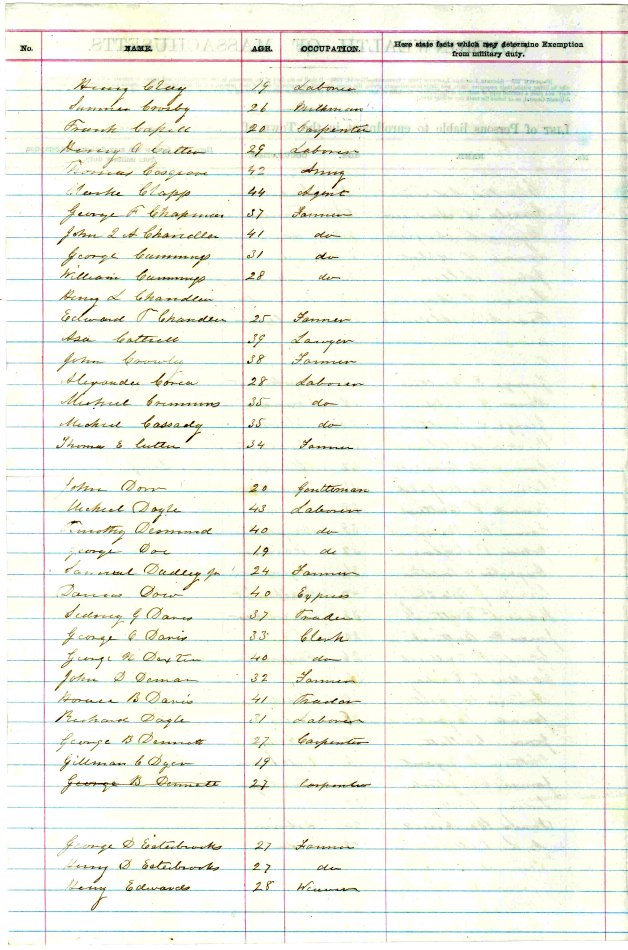 No. NAME. AGE. OCCUPATION. Here state facts which may determine Exemption
from military duty.
Henry Clay 19 Laborer
Sumner Crosby 26 Milkman
Frank Capell 20 Carpenter
Henry C Cutter 29 Laborer
Thomas Cosgrove 42 Army
Clarke Clapp 44 Agent
George F Chapman 37 Farmer
John Q A Chandler 41 do
George Cummings 31 do
William Cummings 28 do
Henry L Chandler
Edward T Chandler 25 Farmer
Asa Cottrell 39 Lawyer
John Crowley 38 Farmer
Alexander Corea 28 Laborer
Michael Crummins 35 do
Michael Cassady 35 do
Thomas E Cutter 34 Farmer
John Dow 20 Gentleman
Michael Doyle 43 Laborer
Timothy Desmond 40 do
George Doe 19 do
Samuel Dudley Jr 24 Farmer
Darius Dow 40 Express
Sidney G Davis 37 Trader
George C Davis 33 Clerk
George N Dexter 40 do
John D Deman 32 Farmer
Horace B Davis 41 Trador
Richard Doyle 31 Laborer
George B Dennett 27 Carpenter
Gillman C Dyer 19
George B Dennett 27 Carpenter
George D Esterbrooks 27 Farmer
Henry D Esterbrooks 27 do
Henry Edwards 28